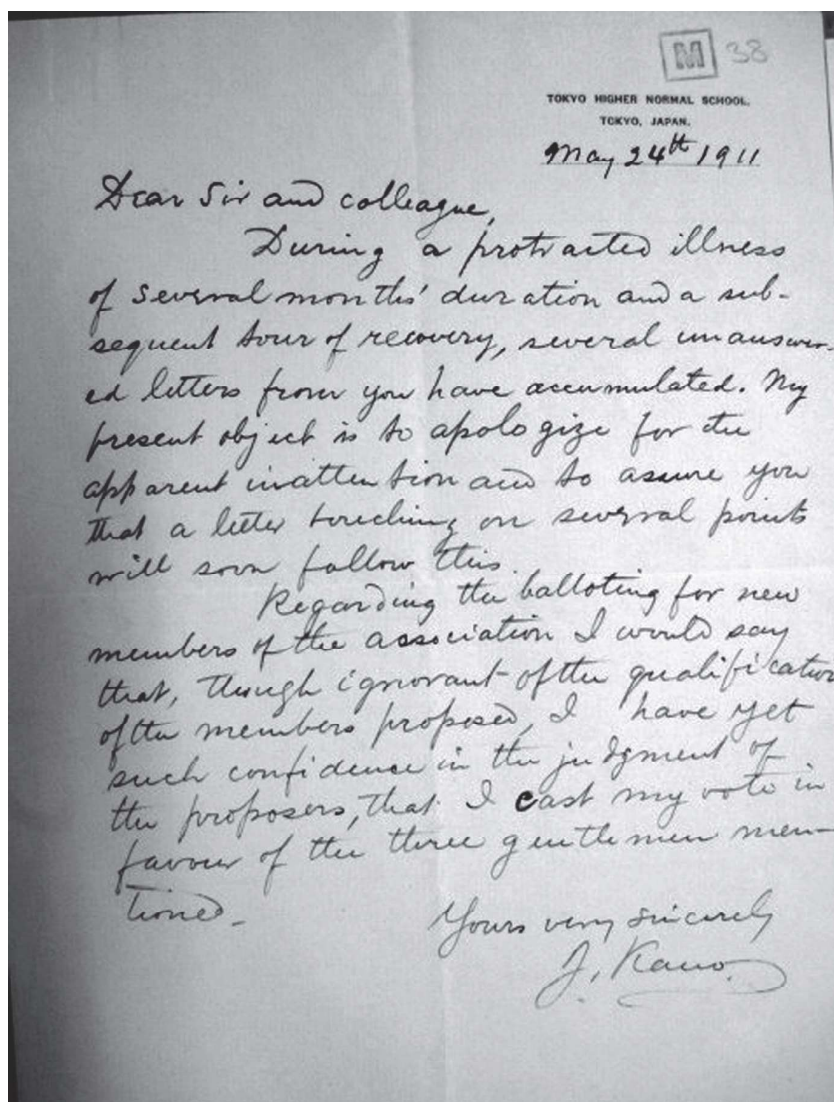 M 38
TOKYO HIGHER NORMAL SCHOOL.
TOKYO, JAPAN.
May 24th 1911
Dear Sir and colleague,
During a protracted illness
of several months' duration and a sub-
sequent tour of recovery, several unanswer-
ed letters from you have accumulated. My
present object is to apologize for the
apparent inattention and to assure you
that a letter touching on several points
will soon follow this.
Regarding the balloting for new
members of the association I would say
that, though ignorant of the qualification
of the members proposed, I have yet
such confidence in the judgment of
the proposers, that I cast my vote in
favour of the three gentlemen men-
tioned.
Yours very sincerely
J. Kano.